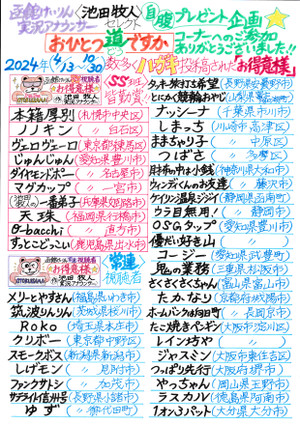 函館けいりん
実況アナウンサー
〈池田牧人〉セレクト
自腹プレゼント企画☆
おひとつ道ですか
コーナーへのご参加
ありがとうございました!!
2024年(4/3〜10/30)数多くハガキ投稿された"お得意様"
SS班
皆勤賞
本籍厚別(札幌市中央区)
ノノキン(〃白石区)
ヴェロヴェーロ(東京都
じゅんじゅん(愛知県豊川市)
ダイヤモンドボー(〃名古屋市)
マダカップ(〃一宮市)
一番弟子(兵庫県姫路市)
天珠(福岡県行橋市)
(〃直方市)
ずっとこどっこい(鹿児島県出水市)
常連
視聴者
メリーとやすさん(福島県いわき市)
筑波りんりん(茨城県桜川市)
Roko(埼玉県
クリボー(東京都中野区)
スモークボス(新潟県新潟市)
しげモン(〃見附市)
ファンクサトシ(〃加茂市)
ゆず(〃御代田町)
タッキー旅打ち希望(長野県
とにかく競輪おやじ(
ナッシーナ(千葉県市川市)
しまっち(川崎市高津区)
ままちゃり子(〃中原区)
つばさ(〃多摩区)
財布の中は小銭(神奈川県大和市)
ウィンディくんのお友達(〃藤沢市)
ケイリン温泉ジジイ(静岡県
ウラ目無用!(〃静岡市)
OSGタップ(愛知県豊川市)
優だい好き山(
コージー(愛知県武豊町)
鬼の業務(三重県松阪市)
さくさくさくちゃん(富山県富山市)
たかなり(京都府城陽市)
ホームバンクは向日町(〃長岡京市)
たこ焼きペンギン(大阪市淀川区)
レインボーや(〃
ジャスミン(大阪市東住吉区)
つっぱり先行(大阪府堺市)
やっちゃん(岡山県玉野市)
ラスカル(徳島県阿南市)
1オン3パット(大分県大分市)